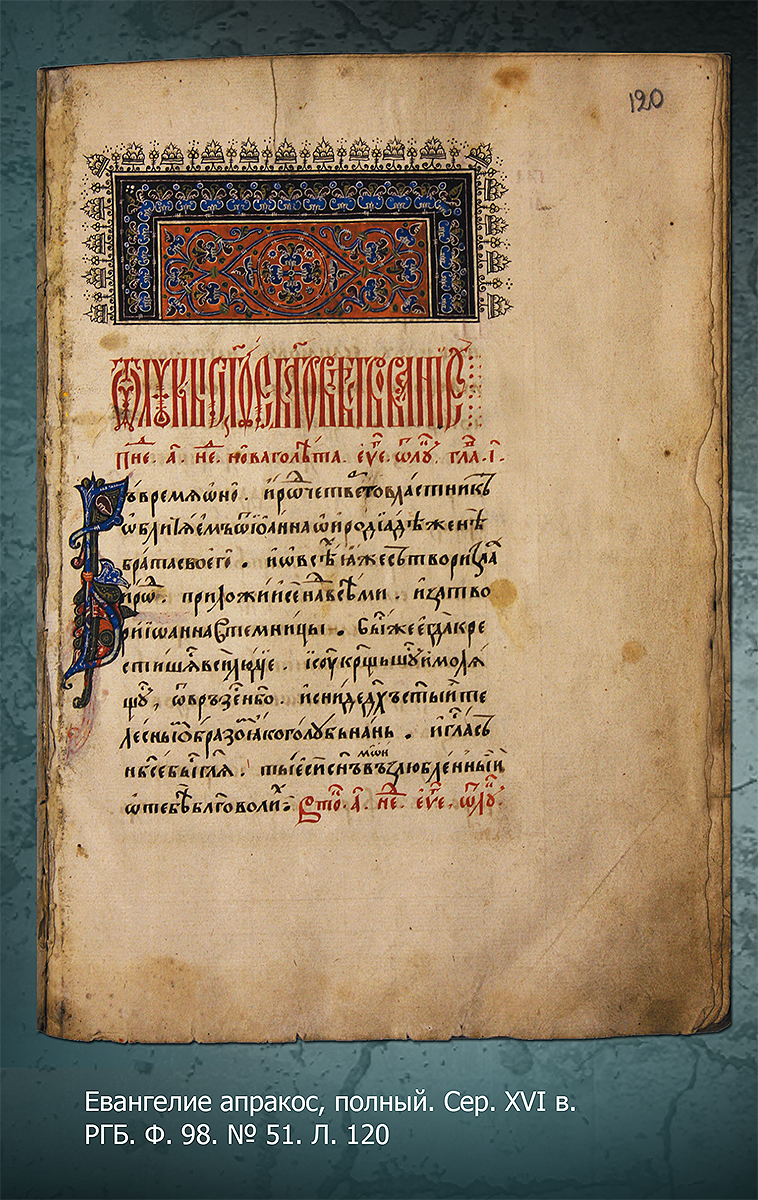 120
ѿ лꙋкы ст҃ое бл҃говѣствованїе
пн҃е. а҃. не҃. новаго лѣта. еѵ҃е. ѿ лꙋ. гла. і҃.
Въ времѧ ѡно. иродъ четвертовластникъ
ѡбличѧемъ ѿ їоанна ѡ иродїадѣ женѣ
брата своего. и ѡ всѣ ꙗже сътвори зла
ирѡ. приложи и се на всѣми. и затво
ри їѡанна в темницы. Бы же егда кре
стишѧ всѝ лю́дїе. і іс҃ꙋ кр҃щьшꙋ и молѧ
щꙋ, ѿврьзе нб҃о. и сниде дх҃ъ ст҃ый те
лесныи ѡбразо ꙗко голубь на нь. и гла съ
нб҃се бы гл҃ѧ. ты еси сн҃ъ мѡи възлюбленныи
ѡ тебѣ бл҃говоли: Сꙋ҃. а҃. не҃. еѵ҃е. ѿ лꙋ.
Евангелие апракос, полный. Сер. XVI в.
РГБ. Ф. 98. № 51. Л. 120